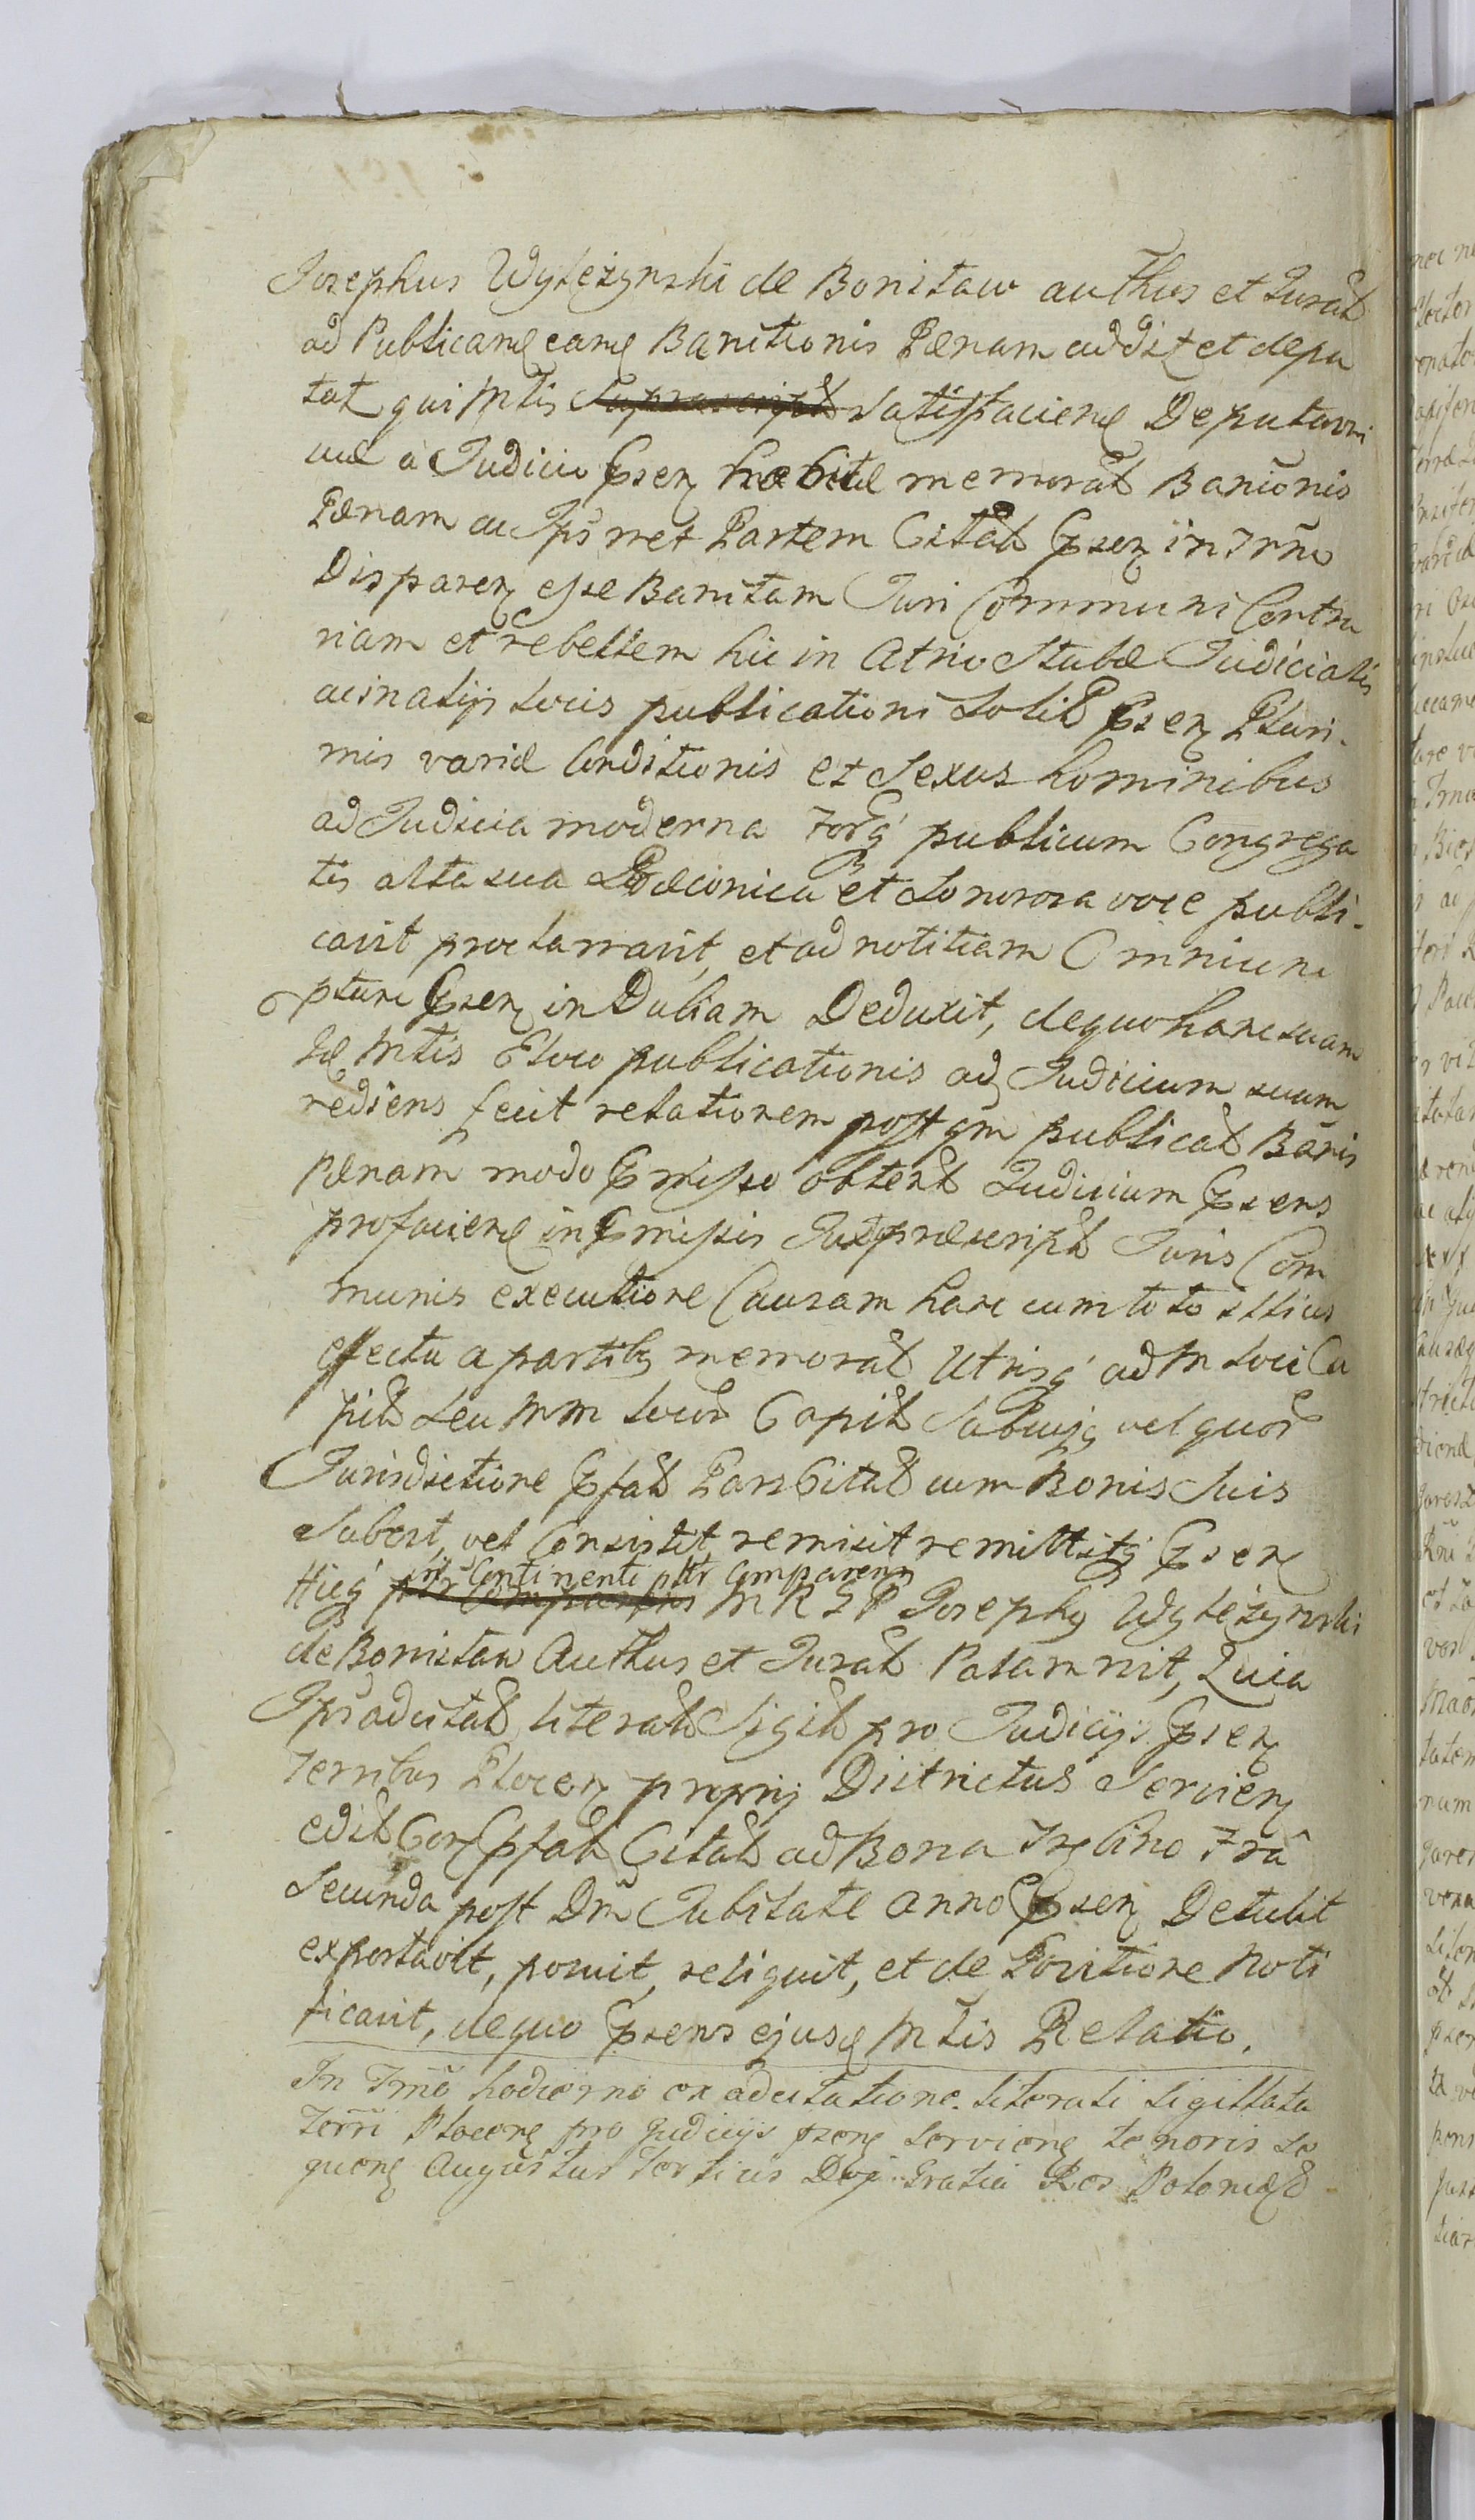 Josephus Wyłeżynski de Bonisław authus et Jurat
ad Publicand eand Banitionis Pænam addit et depu
tat qui Mtis satisfaciend Deputaoni
suæ a Judicio Psen habitæ memorat Banionis
Pænam ac Ips met Partem Citat Psen in Trno
Disparen esse Banitam Juri Communi Contra
riam et rebellem hic in Atrio Stubæ Judicialis
ac in alijs locis publicationi Solit Psen Pluri-
mis variæ Conditionis et Sexus hominibus
ad Judicia moderna Forq publicum Congrega
tis alta sua Præconica et Sonorosa voce publi-
cavit proclamavit, et ad notitiam Omnium
pture Psen in Dubiam Deduxit, de quo hanc suam
Id Mtis E loco publicationis ad Judicium suum
rediens fecit relationem post qm publicat Banis
Pænam modo Pmisso obtent Judicium Psens
pro faciend in Pmissis Juxt præscript Juris Com
munis executione Causam hanc cum toto illius
effectu a partibs memorat Utrisq ad M loci Ca
pit seu MM locor Capit Sub cujq vel quor
Jurisdictione Pfat Pars Citat cum Bonis Suis
Subest, vel Consistit remisit remittitq Psen
Hicq in Continenti pltr Comparenn
M R G P Josephq Wyłeżynski
de Bonisław Authus et Jurat Palam nit, Quia
Ips ad citat literat Sigit pro Judicijs Psen
Terribus Plocen proprij Districtus Servien
edit Con Pfat Citat ad Bona Trębino Fria
Secunda post Dm Jubilate anno Psen Detulit
exportavit, posuit, reliquit, et de Positione Noti
ficavit, de quo Psens ejusd Mtis Relatio.
In Tmo hodierno ex adcitatione literali sigillata
Terri Plocens pro Judicijs psens servient tenoris se
quens Augustus Tertius Dei Gratia Rex Poloniæ